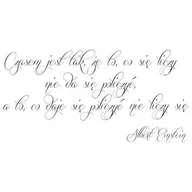 Czasem jest tak, że to, co się liczy
nie da się policzyć,
a to, co daje się policzyć nie liczy się
Albert Einstein